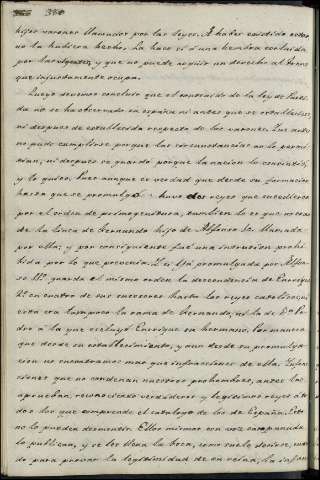 380
hijos varones llamados por las leyes. A haber existido estos,
no la hubiera hecho. La hace si á una hembra excluida
por las vigentes, y que no puede adquirir un derecho al trono
que injustamente ocupa.
Luego debemos concluir que el contenido de la ley de Partida
no se ha observado en españa ni antes que se estableciese,
ni despues de establecida respecto de los varones. Las antes
no pudo cumplirse porque las circunstancias no lo permitian,
ni despues se guardó porque la nacion lo consintió,
y lo quiso. Pues aunque es verdad que desde su formacion
hasta que se promulgó hubo dos reyes que sucedieron
por el orden de primogenitura, tambien lo es que no eran
de la linea de Fernando hijo de Alfonso la llamada
por ella; y por consiguiente fué una intrusion prohibida
por lo que prevenia. I es promulgada por Alfonso
11º guarda el mismo orden la descendencia de Enrique
2º en cuatro de sus sucesores hasta los reyes catolicos;
esta era tampoco la rama de Fernando, ni la de
á la que excluyó Enrique su hermano; por manera
que desde su establecimiento, y aun desde su promulgacion
no encontramos mas que infracciones de ella. Infracciones
que no condenan nuestros prohombres, antes las
aprueban, reconociendo verdaderos y legitimos reyes á todos
los que comprende el catalogo de los de España. Esto
no lo pueden desmentir. Ellos mismos con voz campanuda
lo publican, y se les llena la boca, como suele decirse, cuando
para provar la legitimidad de su reina, la infan